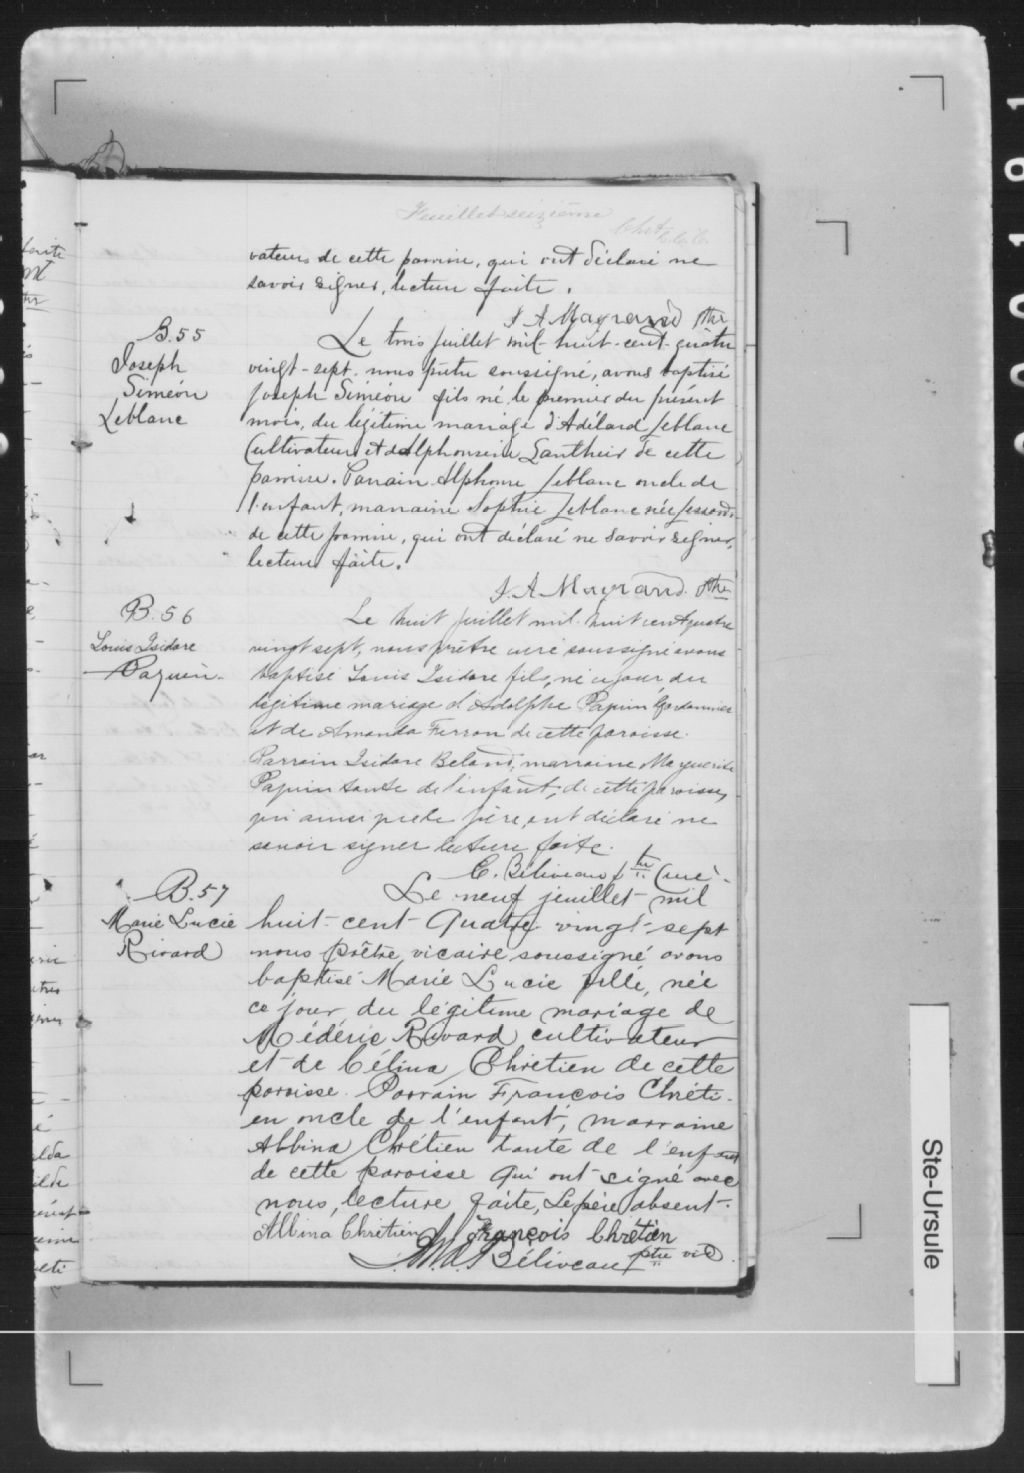 Feuillet seizième
vateurs de cette paroisse, qui ont déclaré ne
savoir signer, lecture faite.
J. A. Mayrand Ptre
B. 55
Joseph
Siméon
Leblanc
Le trois juillet mil-huit-cent-quatre
vingt-sept, nous prêtre soussigné, avons baptisé
Joseph Siméon fils né le premier du présent
mois, du légitime mariage d'Adélard Leblanc
Cultivateur et d'Alphonsine de cette
paroisse. Parrain Alphonse Leblanc oncle de
l'enfant, marraine Sophie Leblanc née
de cette paroisse, qui ont déclaré ne savoir signer,
lecture faite.
J. A. Mayrand. Ptre
B. 56
Louis Isidore
Paquin
Le huit juillet mil-huit cent quatre
vingt sept, nous prêtre curé soussigné avons
baptisé Louis Isidore fils, né ce jour, du
légitime mariage d'Adolphe Papin Cordonnier
et de Amanda Ferron de cette paroisse.
Parrain Isidore Beland, marraine Marguerite
Papin tante de l'enfant, de cette paroisse,
qui ainsi que le père, ont déclaré ne
savoir signer lecture faite.
C. Béliveau ptre Curé
B. 57
Marie Lucie
Rivard
Le neuf jeuillet mil
huit-cent-Quatre-vingt-sept
nous prêtre vicaire soussigné avons
baptisé Marie Lucie fille, née
ce jour du légitime mariage de
Médéric Rivard cultivateur
et de Célina Chrétien de cette
paroisse. Parrain François Chréti-
en oncle de l'enfant, marraine
Albina Chrétien tante de l'enfant
de cette paroisse qui ont signé avec
nous, lecture faite, Le père absent.
Albina Chrétien François Chrétien
Béliveau ptre vic
Ste-Ursule